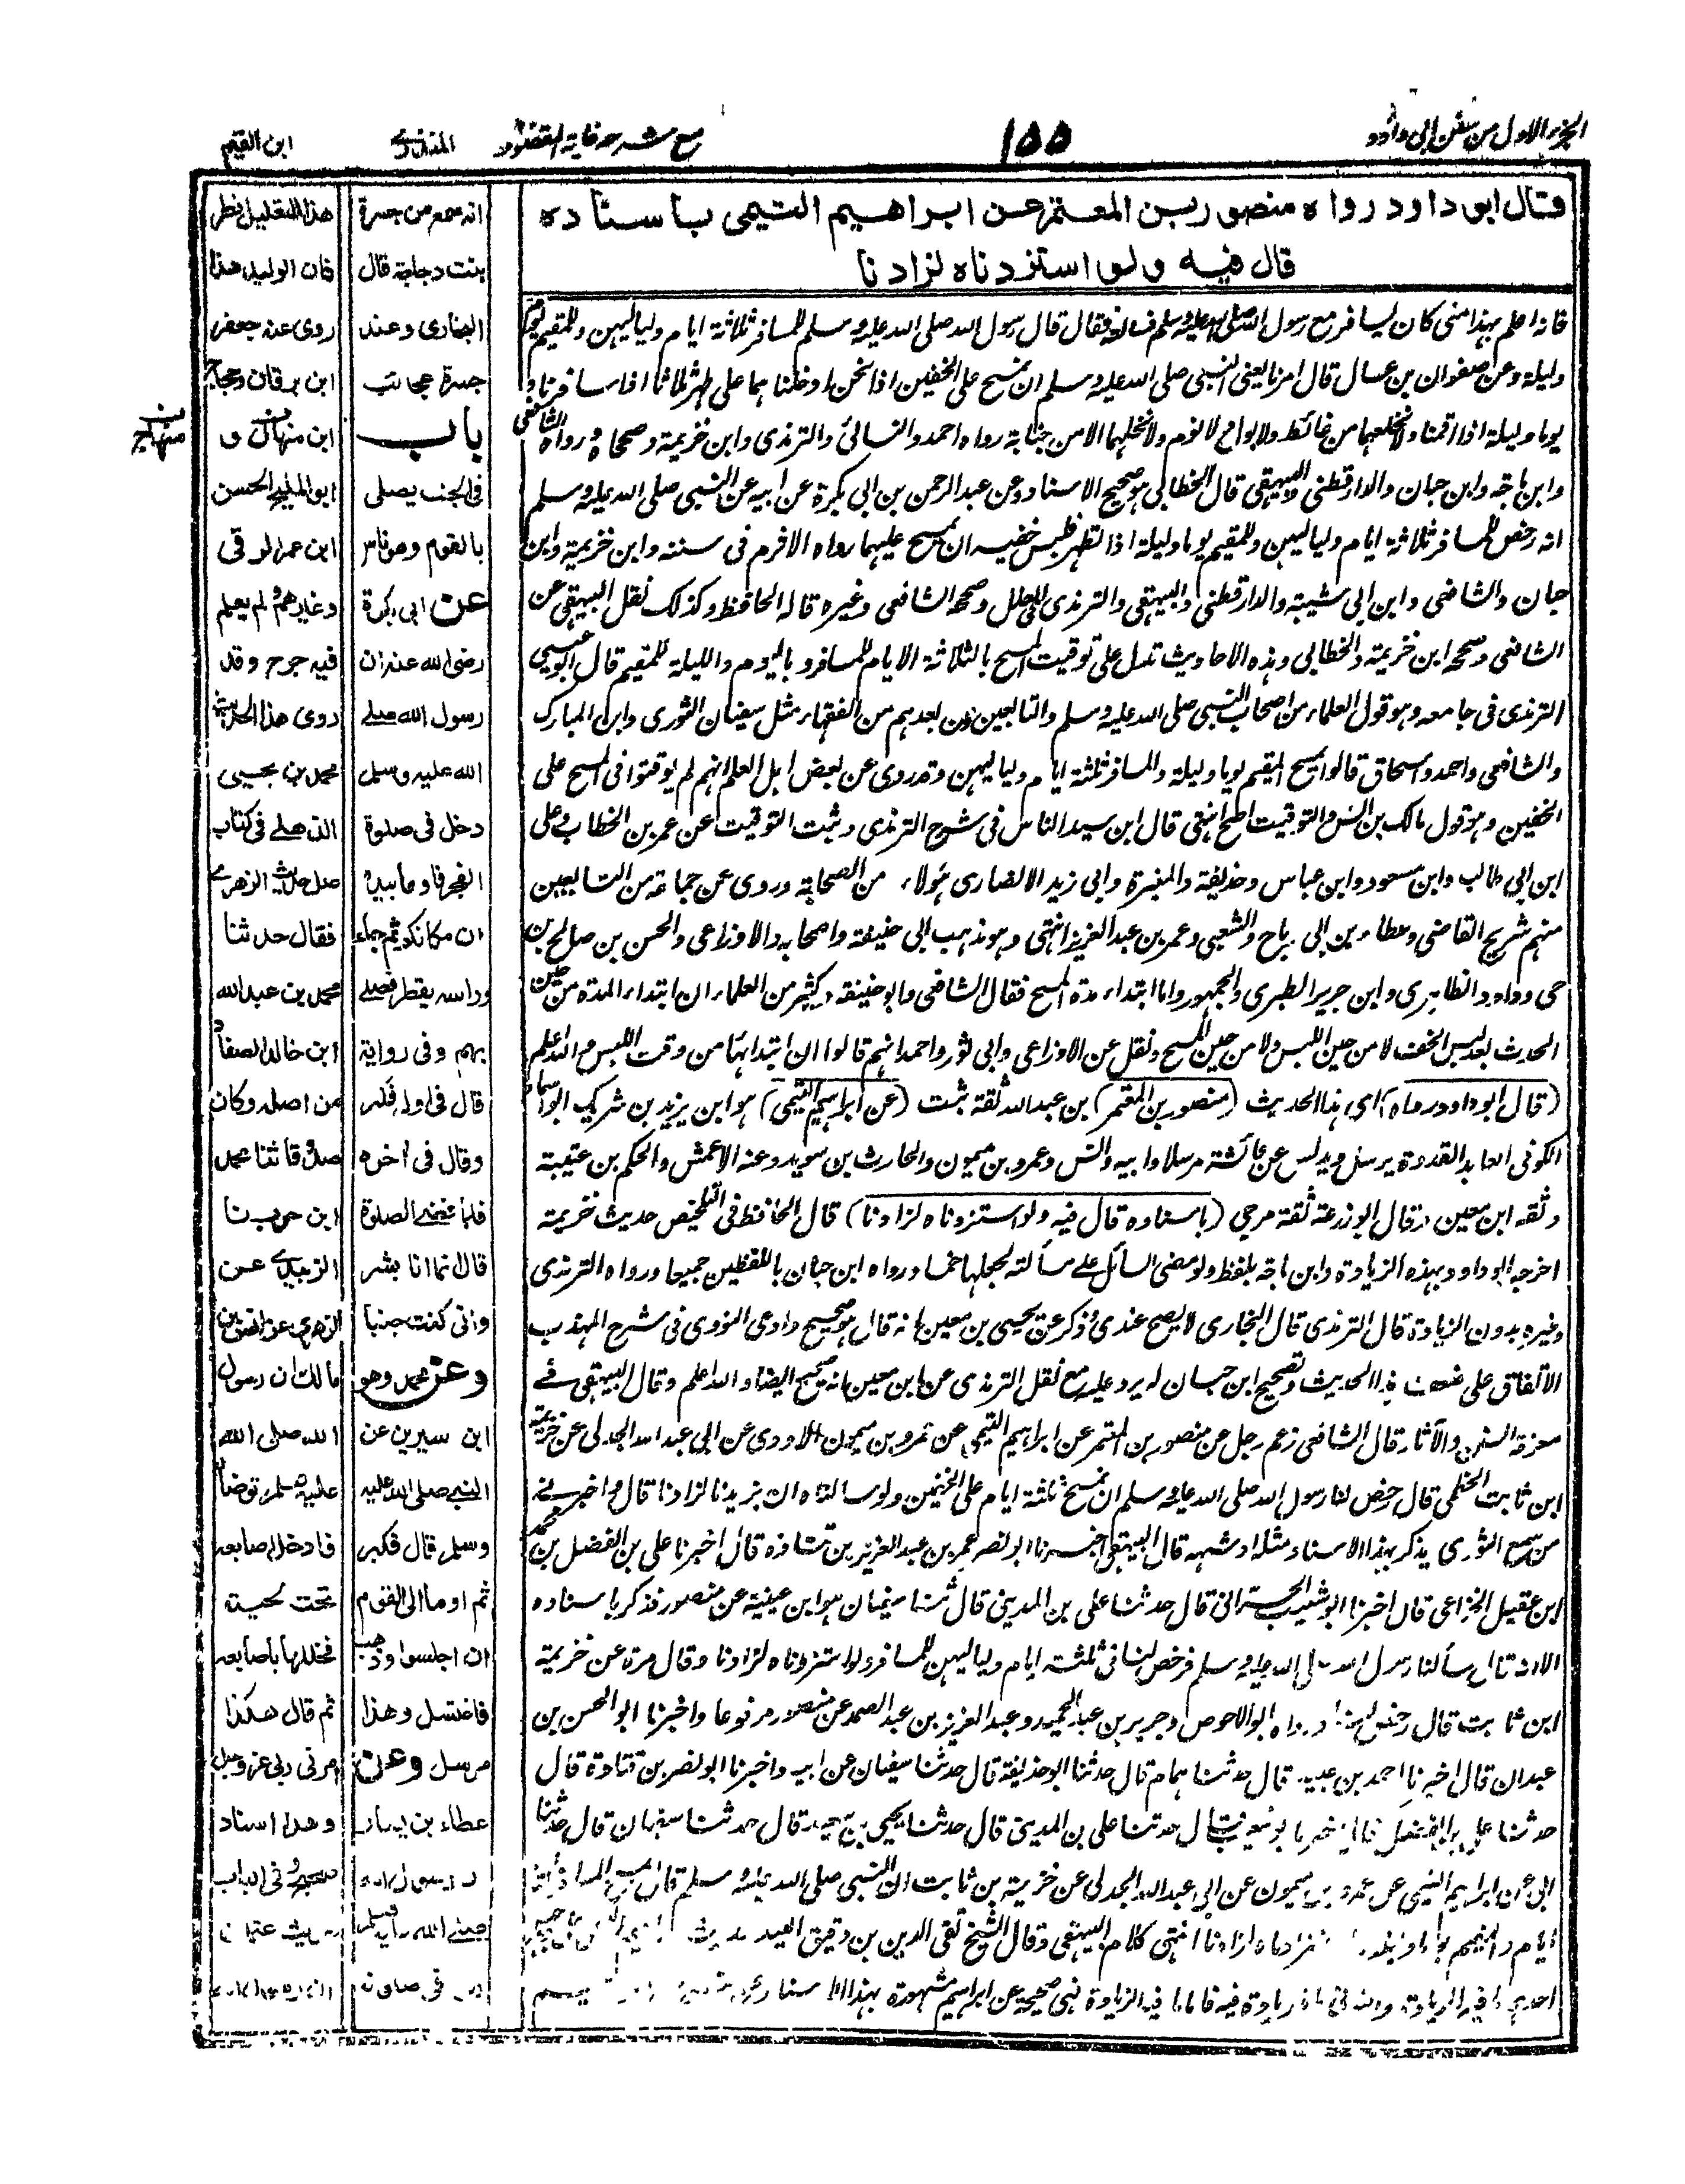 الجزء الاول من سنن ابي داؤد
١٥٥
مع شرحه غاية المقصود
المنذري
ابن القيم
قال ابو داود رواه منصور بن المعتمر عن ابراهيم التيمي باسناده
قال فيه ولو استزدناه لزادنا
فانه اعلم بهذا مني كان يسافر مع رسول الله صلى الله عليه وسلم فسالته فقال قال رسول الله صلى الله عليه وسلم للمسافر ثلاثة ايام ولياليهن وللمقيم يوم
وليلة وعن صفوان بن عسال قال امرنا يعني النبي صلى الله عليه وسلم ان نمسح على الخفين اذا نحن ادخلناهما على طهر ثلاثا اذا سافرنا و
يوما وليلة اذا اقمنا ولا نخلعهما من غائط ولا بول ولا نوم ولا نخلعهما الا من جنابة رواه احمد والنسائي والترمذي وابن خزيمة وصححاه ورواه الشافعي
وابن ماجه وابن حبان والدارقطني والبيهقي قال الخطابي هو صحيح الاسناد وعن عبد الرحمن بن ابي بكرة عن ابيه عن النبي صلى الله عليه وسلم
انه رخص للمسافر ثلاثة ايام ولياليهن وللمقيم يوما وليلة اذا تطهر فلبس خفيه ان يمسح عليهما رواه الاثرم في سننه وابن خزيمة وابن
حبان والشافعي وابن ابي شيبة والدارقطني والبيهقي والترمذي في العلل وصححه الشافعي وغيره قاله الحافظ وكذلك نقل البيهقي عن
الشافعي وصححه ابن خزيمة والخطابي وهذه الاحاديث تدل على توقيت المسح بالثلاثة الايام للمسافر وباليوم والليلة للمقيم قال ابو عيسى
الترمذي في جامعه وهو قول العلماء من اصحاب النبي صلى الله عليه وسلم والتابعين ومن بعدهم من الفقهاء مثل سفيان الثوري وابن المبارك
والشافعي واحمد واسحاق قالوا يمسح المقيم يوما وليلة والمسافر ثلثة ايام ولياليهن وقد روى عن بعض اهل العلم انهم لم يوقتوا في المسح على
الخفين وهو قول مالك بن انس والتوقيت اصح انتهى قال ابن سيد الناس في شرح الترمذي وثبت التوقيت عن عمر بن الخطاب وعلي
ابن ابي طالب وابن مسعود وابن عباس وحذيفة والمغيرة وابي زيد الانصاري هؤلاء من الصحابة وروى عن جماعة من التابعين
منهم شريح القاضي وعطاء بن ابي رباح والشعبي وعمر بن عبد العزيز انتهى وهو مذهب ابي حنيفة واصحابه والاوزاعي والحسن بن صالح بن
حي وداود الظاهري وابن جرير الطبري والجمهور واما ابتداء مدة المسح فقال الشافعي وابو حنيفة وكثير من العلماء ان ابتداء المدة من حين
الحدث بعد لبس الخف لا من حين اللبس ولا من حين المسح ونقل عن الاوزاعي وابي ثور واحمد انهم قالوا ان ابتدائها من وقت اللبس والله اعلم
(قال ابو داود رواه) اي هذا الحديث (منصور بن المعتمر) بن عبد الله ثقة ثبت (عن ابراهيم التيمي) هو ابن يزيد بن شريك ابو اسماء
الكوفي العابد القدوة يرسل ويدلس عن عائشة مرسلا وابيه وانس وعمرو بن ميمون والحارث بن سويد وعنه الاعمش والحكم بن عتيبة
وثقه ابن معين وقال ابو زرعة ثقة مرجي (باسناده قال فيه ولو استزدناه لزادنا) قال الحافظ في التلخيص حديث خزيمة
اخرجه ابو داود بهذه الزيادة وابن ماجه بلفظ ولو مضى السائل على مسألته لجعلها خمسا ورواه ابن حبان باللفظين جميعا ورواه الترمذي
وغيره بدون الزيادة قال الترمذي قال البخاري لا يصح عندي وذكر عن يحيى بن معين انه قال هو صحيح وادعى النووي في شرح المهذب
الاتفاق على ضعف هذا الحديث وتصحيح ابن حبان له يرد عليه مع نقل الترمذي عن ابن معين انه صحيح ايضا والله اعلم وقال البيهقي في
معرفة السنن والآثار قال الشافعي زعم رجل عن منصور بن المعتمر عن ابراهيم التيمي عن عمرو بن ميمون الاودي عن ابي عبد الله الجدلي عن خزيمة
ابن ثابت الخطمي قال رخص لنا رسول الله صلى الله عليه وسلم ان نمسح ثلثة ايام على الخفين ولو سالناه ان يزيدنا لزادنا قال واخبرني
من سمع الثوري يذكر بهذا الاسناد مثله او شبهه قال البيهقي اخبرنا ابو نصر عمر بن عبد العزيز بن قتادة قال اخبرنا علي بن الفضل بن محمد
ابن عقيل الخزاعي قال اخبرنا ابو شعيب الحراني قال حدثنا علي بن المديني قال ثنا سفيان هو ابن عيينة عن منصور فذكر باسناده
الا انه قال سألنا رسول الله صلى الله عليه وسلم فرخص لنا في ثلثة ايام ولياليهن للمسافر ولو استزدناه لزادنا وقال مرة عن خزيمة
ابن ثابت قال رخص لنا ورواه ابو الاحوص وجرير بن عبد الحميد وعبد العزيز بن عبد الصمد عن منصور مرفوعا واخبرنا ابو الحسن بن
عبدان قال اخبرنا احمد بن عبيد قال حدثنا همام قال حدثنا ابو حذيفة قال حدثنا سفيان عن ابيه واخبرنا ابو نصر بن قتادة قال
حدثنا علي بن الفضل قال اخبرنا ابو شعيب قال حدثنا علي بن المديني قال حدثنا يحيى بن سعيد قال حدثنا سفيان قال حدثنا
ابي عن ابراهيم التيمي عن عمرو بن ميمون عن ابي عبد الله الجدلي عن خزيمة بن ثابت ان النبي صلى الله عليه وسلم قال
ايام والمقيم يوما لزادنا انتهى كلام البيهقي وقال الشيخ تقي الدين بن دقيق العيد
الزيادة زيادة فيه فما فيه الزيادة فهي صحيحة عن ابراهيم مشهورة بهذا
انه سمع من جسرة
بنت دجاجة قال
البخاري وعند
جسرة عجائب
باب
في الجنب يصلي
بالقوم وهو ناس
عن ابي بكرة
رضي الله عنه ان
رسول الله صلى
الله عليه وسلم
دخل في صلوة
الفجر فاومأ بيده
ان مكانكم ثم جاء
وراسه يقطر فصلى
بهم وفي رواية
قال في اوله فكبر
وقال في اخره
فلما قضى الصلوة
قال انما انا بشر
واني كنت جنبا
وعن محمد وهو
ابن سيرين عن
النبي صلى الله عليه
وسلم قال فكبر
ثم اومأ الى القوم
ان اجلسوا وذهب
فاغتسل وهذا
مرسل وعن
عطاء بن يسار
ان رسول الله
صلى الله عليه وسلم
في صلوته
هذا التعليل نظر
فان الوليد هذا
روى عنه جعفر
ابن برقان وحجاج
ابن منهال و
منهاج
ابو المليح الحسن
ابن عمر الرقي
وغيرهم ولم يعلم
فيه جرح وقد
روى هذا الحديث
محمد بن يحيى
الذهلي في كتاب
علل حديث الزهري
فقال حدثنا
محمد بن عبد الله
ابن خالد الصفار
من اصله وكان
صدوقا ثنا محمد
ابن حرب نا
الزبيدي عن
الزهري عن انس بن
مالك ان رسول
الله صلى الله
عليه وسلم توضأ
فادخل اصابعه
تحت لحيته
فخللها باصابعه
ثم قال هكذا
امرني ربي عز وجل
وهذا اسناد
صحيح وفي الباب
حديث عثمان